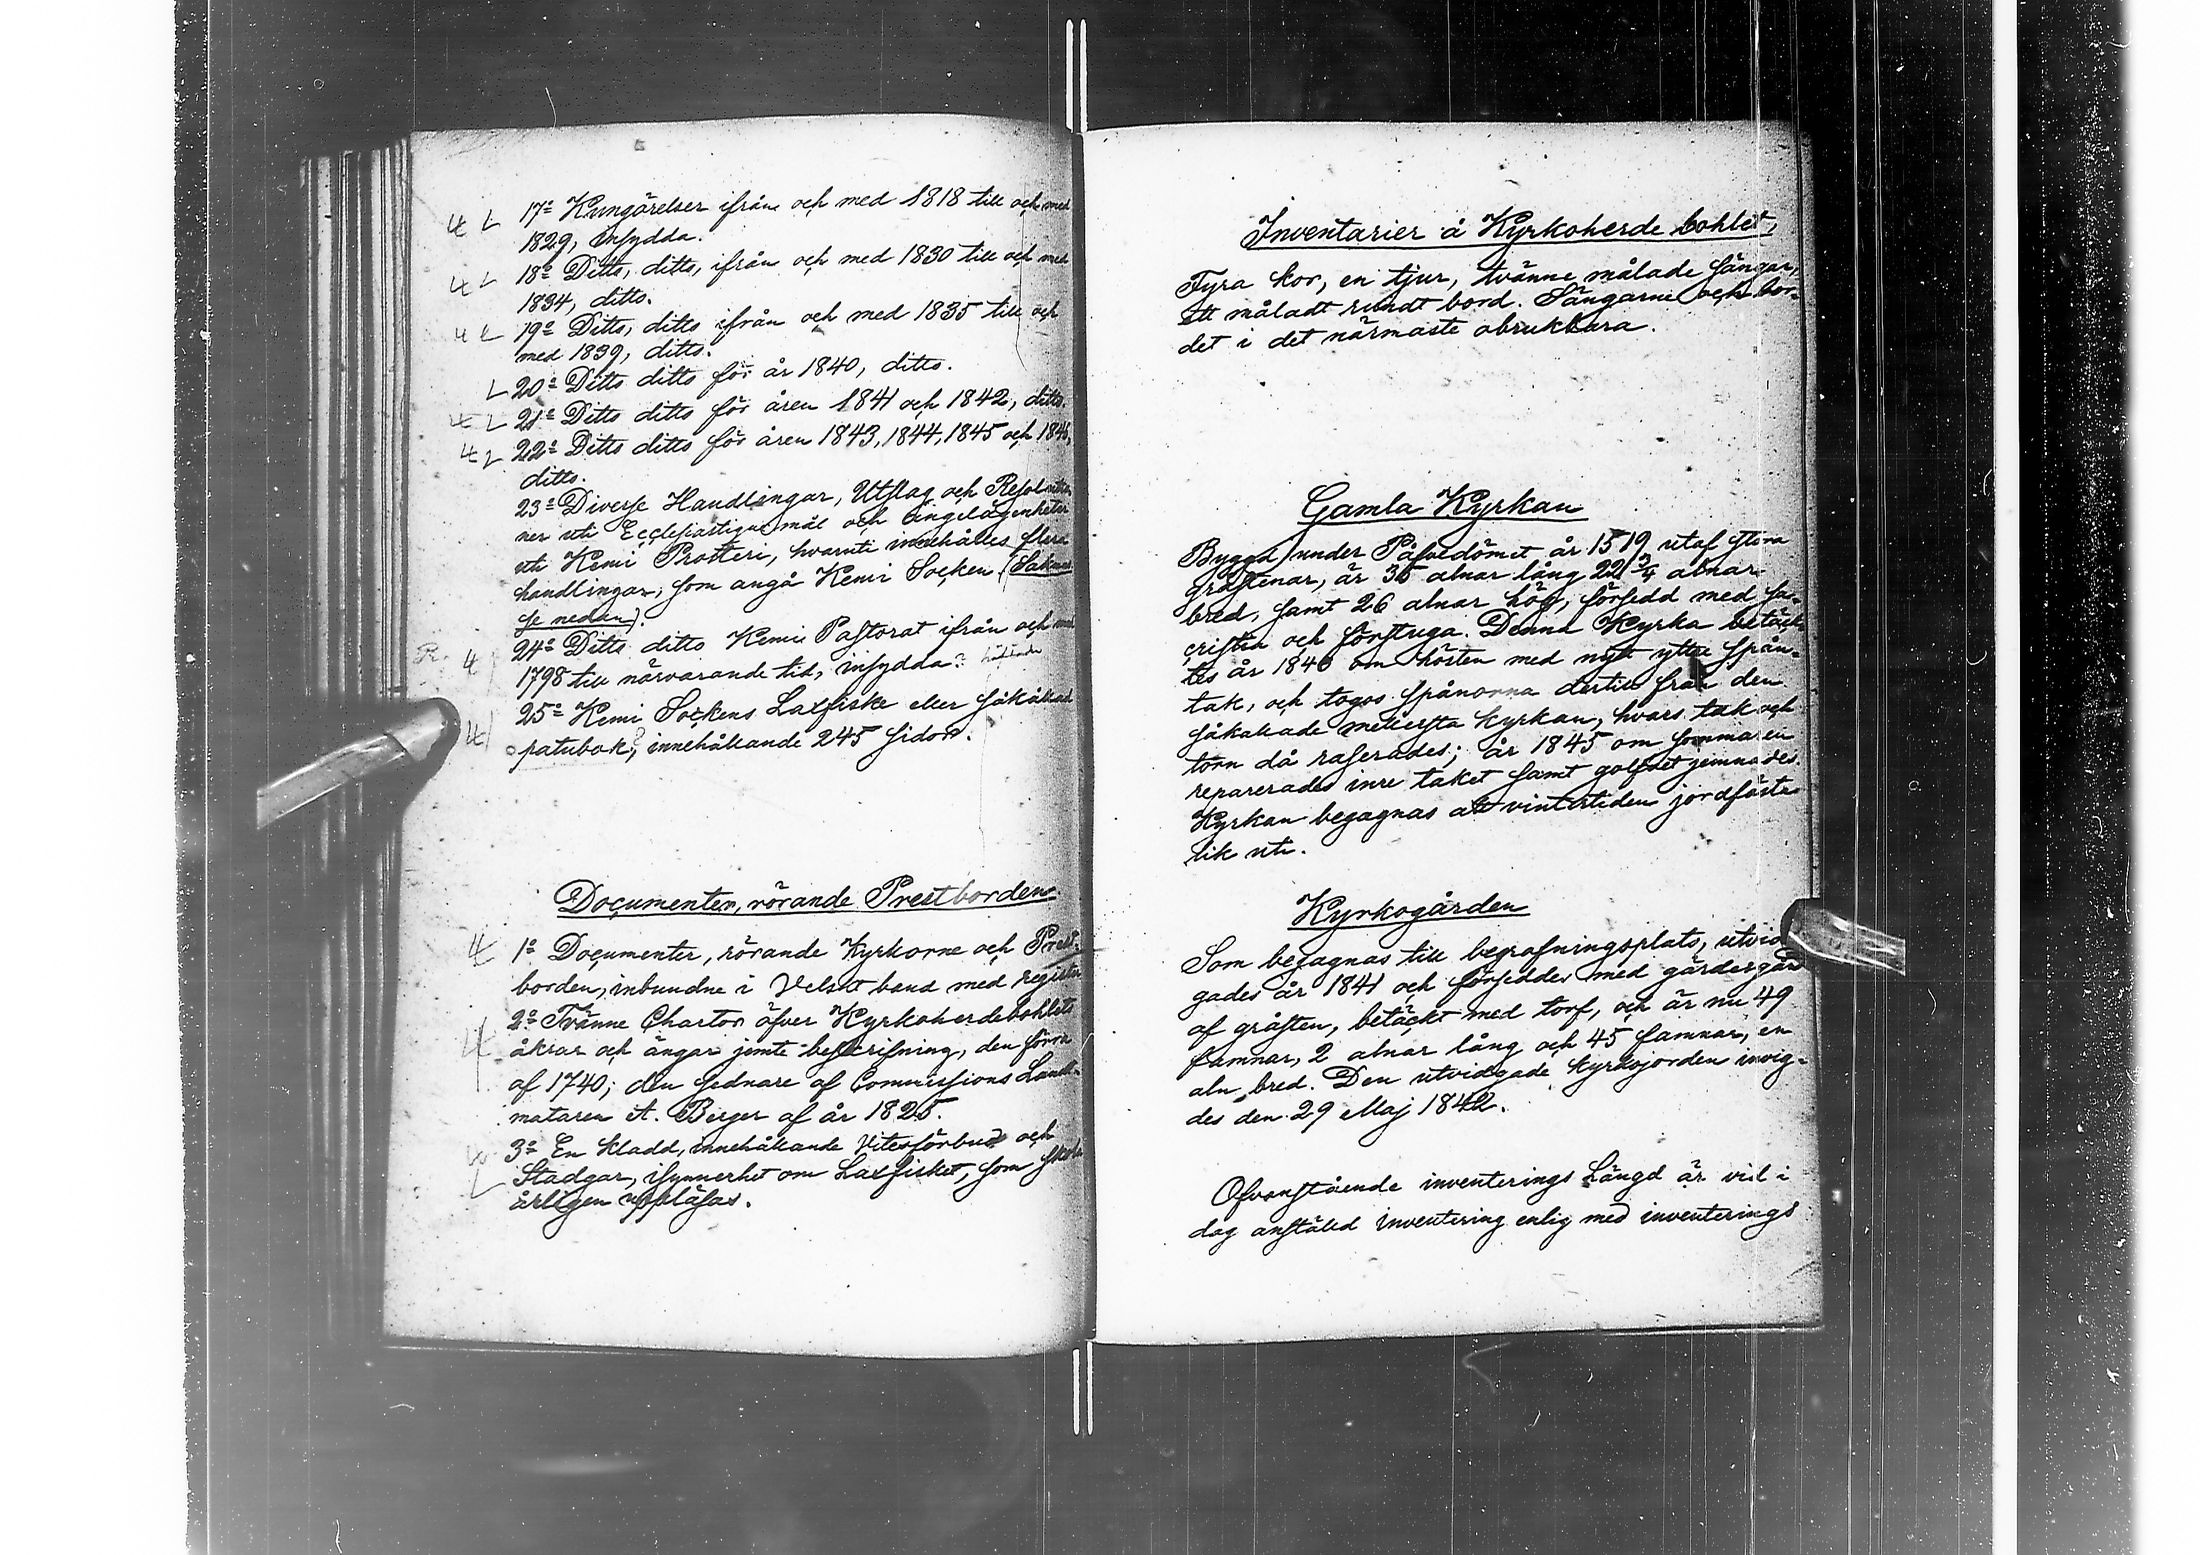 17o Kungörelser ifrån och med 1818 till och med
1829, insydda.
18o Ditto, ditto, ifrån och med 1830 till och med
1834, ditto.
19o Ditto, ditto ifrån och med 1835 till och
med 1839, ditto.
20o Ditto ditto för år 1840, ditto.
21o Ditto ditto för åren 1841 och 1842, ditto.
22o Ditto ditto för åren 1843, 1844, 1845 och 1846,
ditto.
23o Diverse Handlingar, Utslag och Resolutio
ner uti Ecclesiastique mål och angelägenheter
uti Kemi Prosteri, hvaruti innehålles flera
handlingar, som angå Kemi Socken (Saknas
se nedan).
24o Ditto ditto Kemi Pastorat ifrån och med
1798 till närvarande tid, insydda?
25o Kemi Sockens Laxfiske eller såkallad
patubok, innehållande 245 sidor.
Documenter, rörande Prestborden
1o Documenter, rörande Kyrkorne och Prest-
borden, inbundne i Velskt band med register
2o Tvänne Chartor öfver Kyrkoherdebohlets
åkrar och ängar jemte beskrifning, den förra
af 1740; den sednare af Commissions Landt-
mätaren A. Berger af år 1825.
3o En kladd, innehållande Vitesförbud och
Stadgar, isynnerhet om Laxfisket, som skola
årligen uppläsas.
Inventarier å Kyrkoherde bohlet,
Fyra kor, en tjur, tvänne målade sängar,
ett måladt rundt bord. Sängarne och bor-
det i det närmaste obrukbara.
Gamla Kyrkan
Byggd under Påfvedömet år 1519 utaf stora
gråstenar, är 35 alnar lång 22 3/4 alnar
bred, samt 26 alnar hög, försedd med sa-
cristia och förstuga. Denna Kyrka betäck-
tes år 1840 om hösten med nytt yttre spån-
tak, och togos spånorna dertill från den
såkallade mellersta kyrkan, hvars tak och
torn då raserades; år 1845 om sommaren
reparerades inre taket samt golfvet jemnades.
Kyrkan begagnas att vintertiden jordfästa
lik uti.
Kyrkogården
Som begagnas till begrafningsplats, utvid
gades år 1841 och förseddes med gärdesgård
af gråsten, betäckt med torf, och är nu 49
famnar, 2 alnar lång och 45 famnar, en
aln bred. Den utvidgade kyrkojorden invig-
des den 29 Maj 1842.
Ofvanstående inventerings Längd är vid i
dag anstäld inventering enlig med inventerings